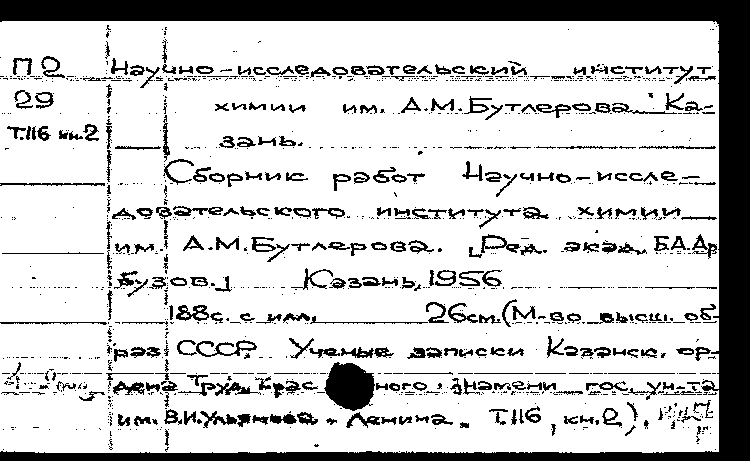 П2 Научно-исследовательский институт
29 химии им. А.М.Бутлерова. Ка-
Т.116 кн.2 зань.
Сборник работ Научно-иссле-
довательского института химии
им. А.М.Бутлерова. [Ред. акад. Б.А.Ар
бузов.] Казань, 1956
188с. с илл. 26см.(М-во высш. об-
раз СССР. Ученые записки Казанск. ор-
дена Труд. Крас ного знамени гос. ун-та
им. В.И.Ульянова - Ленина. Т.116, кн.2).